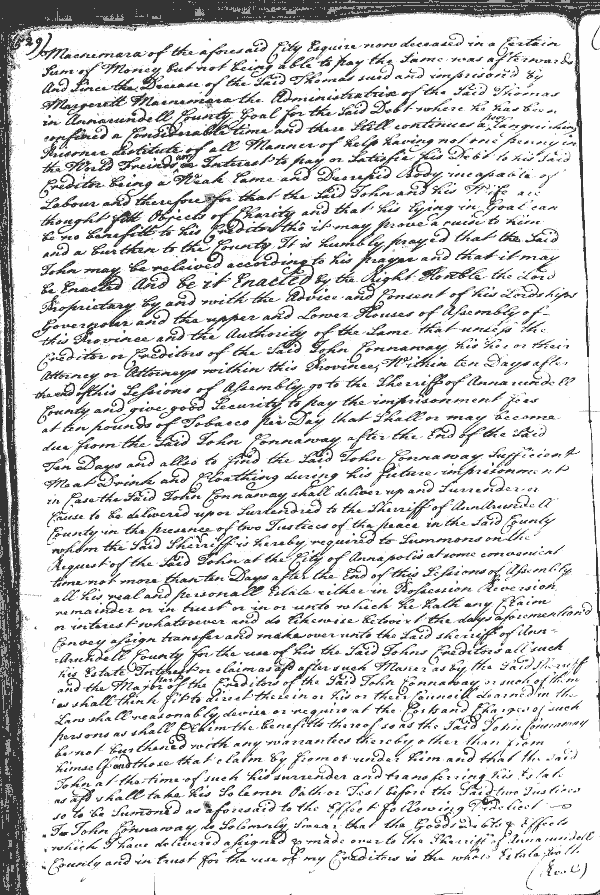 (529)
Macnemara of the aforesaid City Esquire now deceased in a Certain
Sum of Money but not being able to pay the Same was afterwards
And Since the Decease of the Said Thomas sued and imprison'd by
Margarett Macnemara the Administratrix of the Said Thomas
in Annarundell County Goal for the Said Debt where he has been
confined a Considerable time and there Still continues a poor Languishing
Prisoner Destitute of all Manner of help having not one penny in
the World Freinds or Interest to pay or Satisfie his Debt to his said
Creditor being a Weak Lame and Decreped body incapable of
Labour and therefore for that the Said John and his Wife are
thought fitt Objects of Charity and that his lying in Goal can
be no benefitt to his Creditor tho it may prove a ruin to him
and a burthen to the County It is humbly prayed that the Said
John may be releived according to his prayer and that it may
be Enacted And be it Enacted by the Right Honble the Lord
Proprietary by and with the Advice and Consent of his Lordships
Governour and the upper and Lower Houses of Assembly of
this Province and the Authority of the Same that unless the
Creditor or Creditors of the Said John Connaway his her or their
Attorney or Attorneys within this Province, Within ten Days after
the end of this Sessions of Assembly go to the Sherriff of Annarundell
County and give good Security to pay the imprisonment fees
at ten pounds of Tobacco per Day that Shall or may become
due from the Said John Connaway after the End of the Said
Ten Days and allso to find the Said John Connaway Sufficient
Meat Drink and Cloathing during his future imprisonment
in Case the Said John Connaway shall deliver up and Surrender or
Cause to be delivered up or Surrendred to the Sherriff of AnnArundell
County in the presence of two Justices of the peace in the Said County
whom the Said Sherriff is hereby required to Summons on the
Request of the Said John at the City of Annapolis at some convenient
time not more than ten Days after the End of this Sessions of Assembly
all his real and personall Estate either in Possession Reversion
remainder or in trust or in or unto which he hath any Claim
or interest whatsoever and do likewise betwixt the days aforementiond
Convey assign transfer and make over unto the Said sherriff of Ann-
Arundell County for the use of his the Said Johns Creditors all such
his Estate Interest or claim as afd after such Maner as by the Said Sherriff
and the Major part of the Creditors of the Said John Connaway or such of them
as shall think fit to direct therein or his or their Councill Learned in the
Law shall reasonably devise or require at the Costs and Charges of such
persons as shall Claim the benefitts thereof so as the Said John Connaway
be not burthened with any warrantees thereby other than from
himself and those that claim by from or under him and that the Said
John at the time of such his surrender and transferring his Estate
as afd shall take his Solemn Oath or Test before the Said two Justices
so to be Sumoned as aforesaid to the Effect following Videlicet
I John Connaway do Solemnly Swear that the Goods debts & Effects
which I have delivered assigned & made over to the Sherriff of Annarundell
County and in trust for the use of my Creditors is the whole Estate both
(Real)